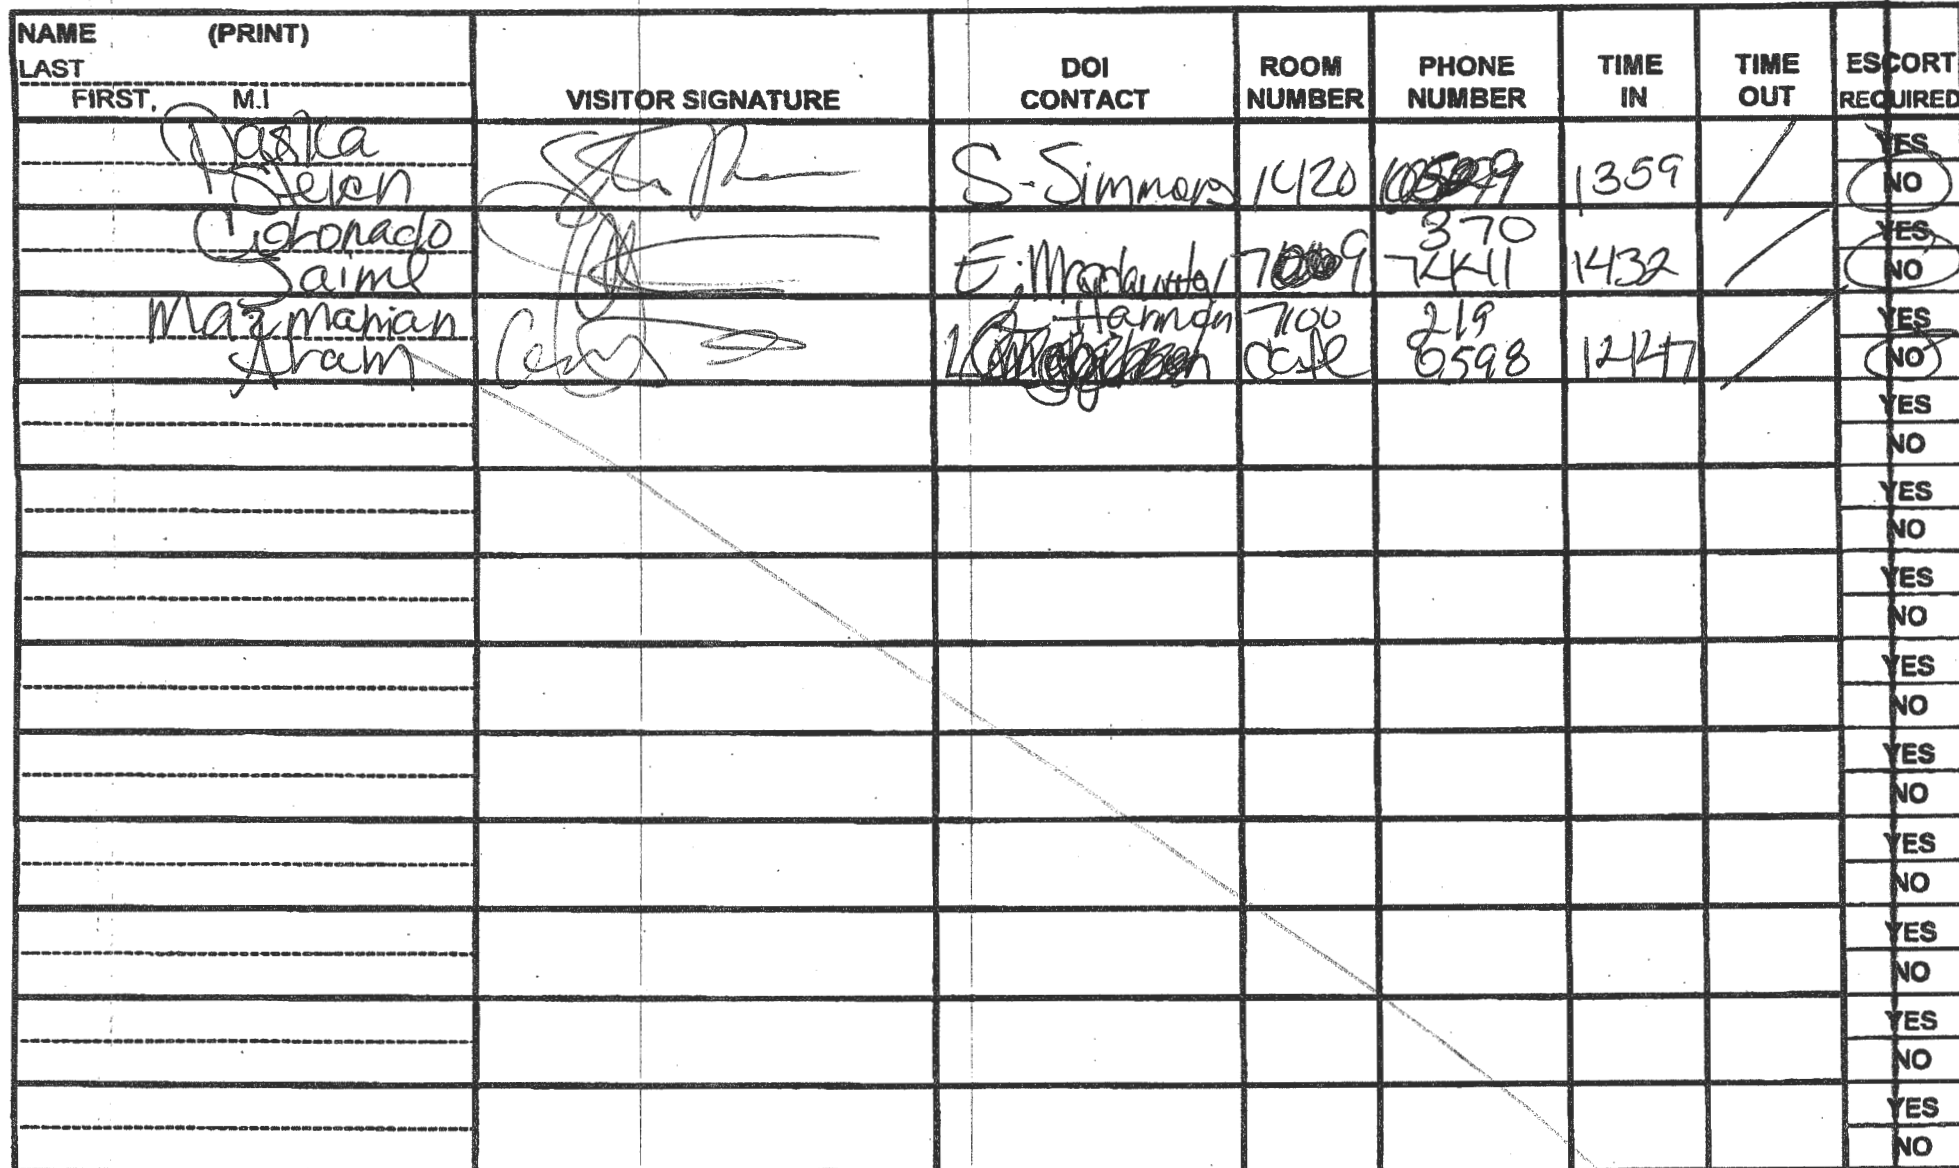 NAME (PRINT)
LAST
FIRST, M.I
VISITOR SIGNATURE
DOI
CONTACT
ROOM
NUMBER
PHONE
NUMBER
TIME
IN
TIME
OUT
ESCORT
REQUIRED
S. Simmons 1420 1359
YES
NO
Coronado
Jaime
E. 370
1432
YES
NO
Mazmanian
Aram
Harmon 7100 219
cafe
YES
NO
YES
NO
YES
NO
YES
NO
YES
NO
YES
NO
YES
NO
YES
NO
YES
NO
YES
NO